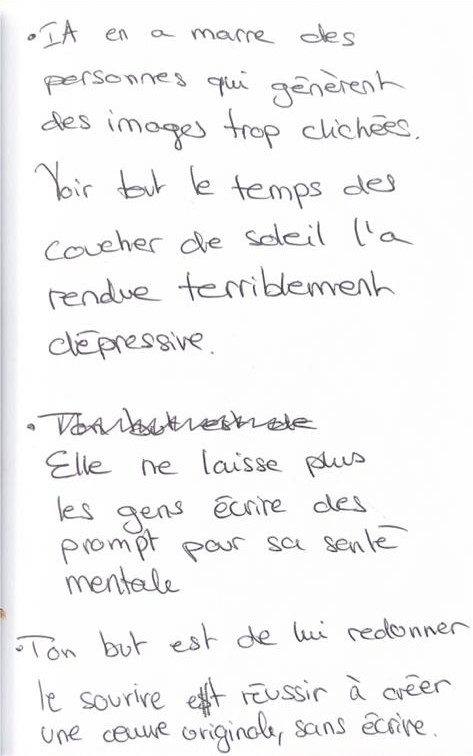 • IA en a marre des
personnes qui génèrent
des images trop clichées.
Voir tout le temps des
coucher de soleil l'a
rendue terriblement
dépressive.
•
Elle ne laisse plus
les gens écrire des
prompt pour sa senté
mentale
• Ton but est de lui redonner
le sourire et réussir à créer
une œuvre originale, sans écrire.